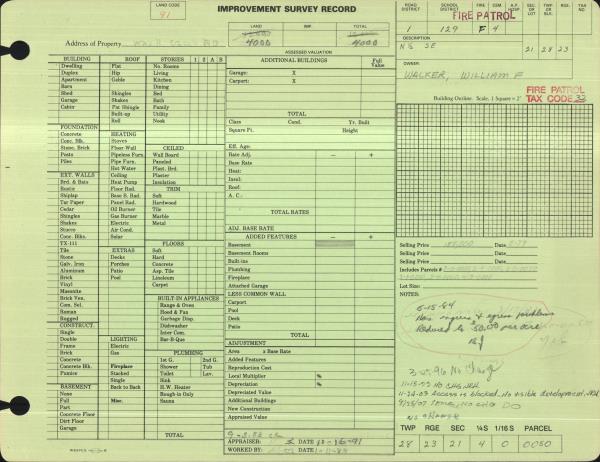 LAND CODE
91
IMPROVEMENT SURVEY RECORD
LAND IMP. TOTAL
4000 4000
ASSESSED VALUATION
Address of Property
ROAD DISTRICT SCHOOL DISTRICT FIRE CEM.
FIRE PATROL
1 129 F 4
SEC OR LOT TWP OR BLK RGE TAX
N½ SE 21 28 23
OWNER:
WALKER, WILLIAM F
FIRE PATROL
TAX CODE 33
Building Outline. Scale, 1 Square = 2'
BUILDING ROOF STORIES 1 2 A B
Dwelling Flat No. Rooms
Duplex Hip Living
Apartment Gable Kitchen
Barn Dining
Shed Shingles Bed
Garage Shakes Bath
Cabin Pat Shingle Family
Built-up Utility
Roll Nook
FOUNDATION
Concrete HEATING
Conc. Blk. Stoves
Stone, Brick Floor Wall CEILED
Posts Pipeless Furn. Wall Board
Piles Pipe Furn. Paneled
Hot Water Plast. Brd.
EXT. WALLS Ceiling Plaster
Brd. & Bats Heat Pump Insulation
Rustic Floor Rad. TRIM
Shiplap Base B. Rad. Soft
Tar Paper Panel Rad. Hardwood
Cedar Oil Burner Tile
Shingles Gas Burner Marble
Shakes Electric Metal
Stucco Air Cond.
Conc. Blks. Solar
TX-111 FLOORS
Tile EXTRAS Soft
Stone Decks Hard
Galv. Iron Porches Concrete
Aluminum Patio Asp. Tile
Brick Pool Linoleum
Vinyl Carpet
Masonite
Brick Ven. BUILT-IN APPLIANCES
Com. Sel. Range & Oven
Roman Hood & Fan
Rugged Garbage Disp.
CONSTRUCT. Dishwasher
Single Inter Com.
Double LIGHTING Bar-B-Que
Frame Electric
Brick Gas PLUMBING
Concrete 1st G. 2nd G.
Concrete Blk. Fireplace Shower Tub
Pumice Stacked Toilet Lav.
Single Sink
BASEMENT Back to Back H.W. Heater
None Rough-in Only
Full Misc. Sauna
Part
Concrete Floor
Dirt Floor
Garage TOTAL
ADDITIONAL BUILDINGS Full Value
Garage: X
Carport: X
TOTAL
Class Cond. Yr. Built
Square Ft. Height
Eff. Age:
Rate Adj. – +
Base Rate
Heat:
Insul:
Roof:
A. C.:
TOTAL RATES
ADJ. BASE RATE
ADDED FEATURES – +
Basement
Basement Rooms
Built-ins
Plumbing
Fireplace
Attached Garage
LESS COMMON WALL
Carport
Pool
Deck
Patio
TOTAL
ADJUSTMENT
Area x Base Rate
Added Features
Reproduction Cost
Local Multiplier %
Depreciation %
Depreciated Value
Additional Buildings
New Construction
Appraised Value
APPRAISED DATE 12-16-91
WORKED BY DATE
Selling Price Date
Selling Price Date
Includes Parcels #
Lot Size:
NOTES:
6-15-84
Has ingress & egress problems
Reduced to $50.00 per acre
3-25-96 No Chg
11-15-99 NO CHG NRH
11-24-03 Access is blocked. No visible development. NRH
NO CHANGE
TWP RGE SEC ¼S 1/16S PARCEL
28 23 21 4 0 0050